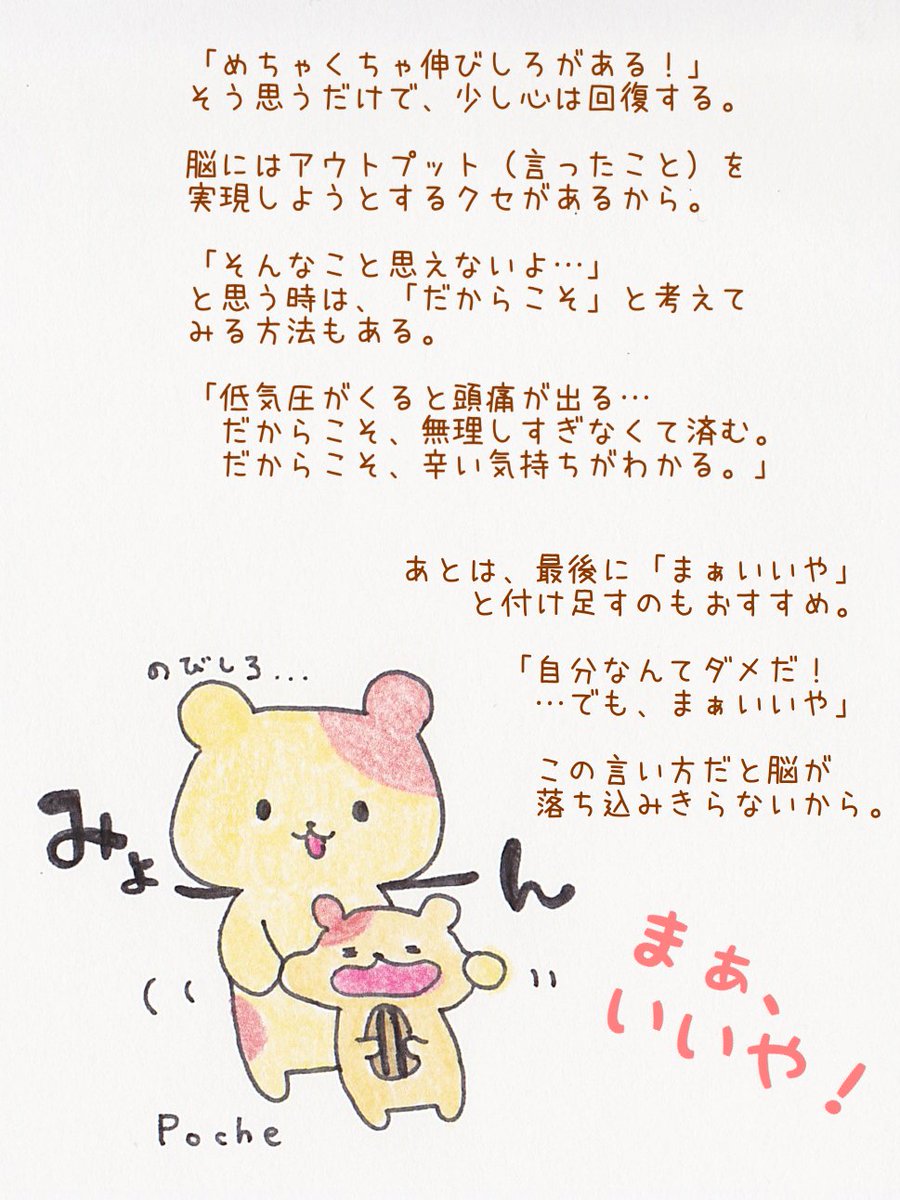 「めちゃくちゃ伸びしろがある！」
そう思うだけで、少し心は回復する。
脳にはアウトプット（言ったこと）を
実現しようとするクセがあるから。
「そんなこと思えないよ…」
と思う時は、「だからこそ」と考えて
みる方法もある。
「低気圧がくると頭痛が出る…
だからこそ、無理しすぎなくて済む。
だからこそ、辛い気持ちがわかる。」
あとは、最後に「まぁいいや」
と付け足すのもおすすめ。
「自分なんてダメだ！
…でも、まぁいいや」
この言い方だと脳が
落ち込みきらないから。
のびしろ...
みょーん
まぁ、
いいや！
Poche